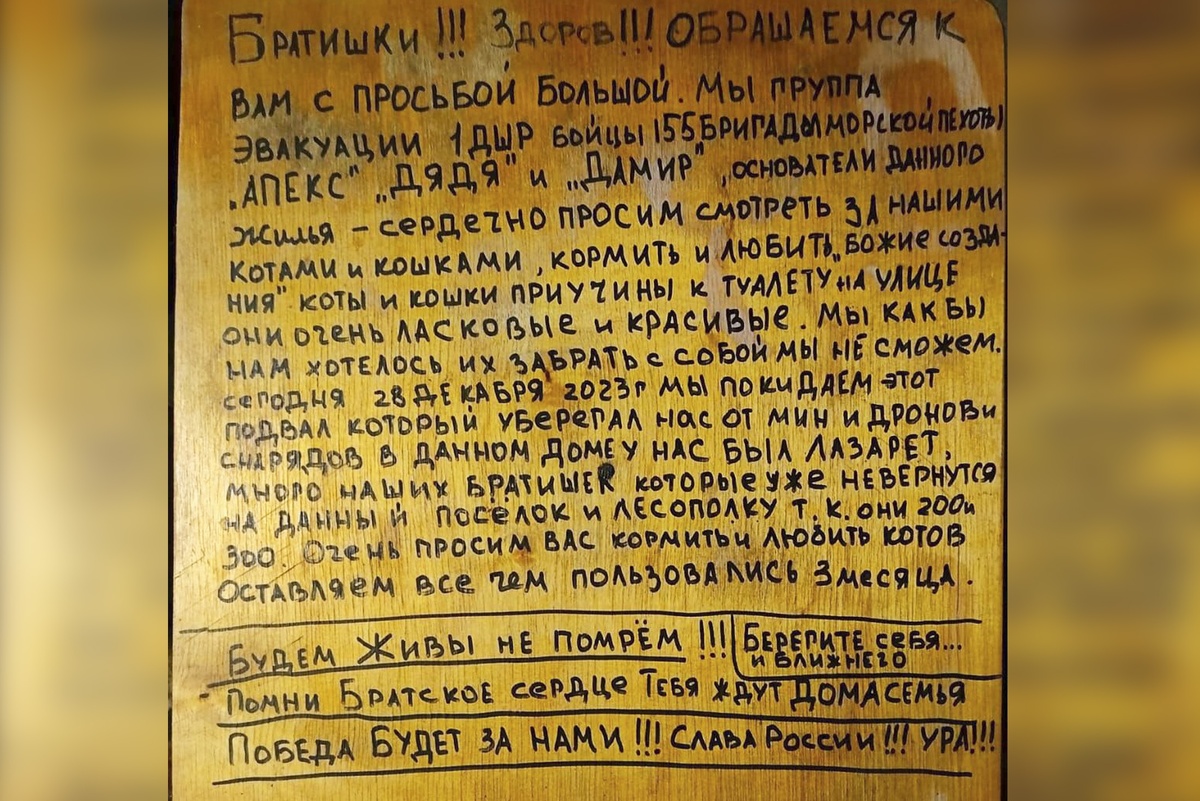 Братишки!!! Здоров!!! ОБРАЩАЕМСЯ К
ВАМ С ПРОСЬБОЙ БОЛЬШОЙ. МЫ ГРУППА
ЭВАКУАЦИИ 1ДШР БОЙЦЫ 155 БРИГАДЫ МОРСКОЙ ПЕХОТЫ
„АПЕКС" „ДЯДЯ" и „ДАМИР", ОСНОВАТЕЛИ ДАННОГО
ЖИЛЬЯ – СЕРДЕЧНО ПРОСИМ СМОТРЕТЬ ЗА НАШИМИ
КОТАМИ и КОШКАМИ, КОРМИТЬ и ЛЮБИТЬ „БОЖИЕ СОЗДА-
НИЯ" КОТЫ и КОШКИ ПРИУЧИНЫ К ТУАЛЕТУ НА УЛИЦЕ
ОНИ ОЧЕНЬ ЛАСКОВЫЕ и КРАСИВЫЕ. МЫ КАК БЫ
НАМ ХОТЕЛОСЬ ИХ ЗАБРАТЬ с СОБОЙ МЫ НЕ СМОЖЕМ.
СЕГОДНЯ 28 ДЕКАБРЯ 2023г МЫ ПОКИДАЕМ ЭТОТ
ПОДВАЛ КОТОРЫЙ УБЕРЕГАЛ НАС ОТ МИН и ДРОНОВ и
СНАРЯДОВ В ДАННОМ ДОМЕ У НАС БЫЛ ЛАЗАРЕТ,
МНОГО НАШИХ БРАТИШЕК КОТОРЫЕ УЖЕ НЕВЕРНУТСЯ
НА ДАННЫЙ ПОСЁЛОК и ЛЕСОПОЛКУ Т.К. ОНИ 200и
300. ОЧЕНЬ ПРОСИМ ВАС КОРМИТЬ и ЛЮБИТЬ КОТОВ
ОСТАВЛЯЕМ ВСЕ ЧЕМ ПОЛЬЗОВАЛИСЬ 3 МЕСЯЦА.
БУДЕМ ЖИВЫ НЕ ПОМРЁМ!!!
БЕРЕГИТЕ СЕБЯ...
и БЛИЖНЕГО
ПОМНИ БРАТСКОЕ СЕРДЦЕ ТЕБЯ ЖДУТ ДОМА СЕМЬЯ
ПОБЕДА БУДЕТ ЗА НАМИ!!! СЛАВА РОССИИ!!! УРА!!!